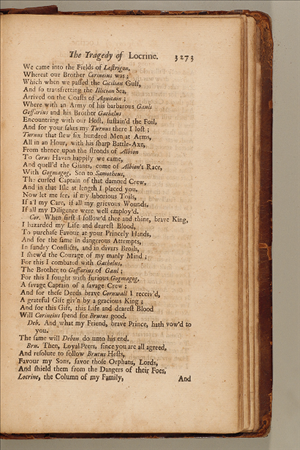 The Tragedy of Locrine. 3273
We came into the Fields of Lestrigon,
Whereat our Brother Corineius was;
Which when we passed the Cicilian Gulf,
And so transfretting the Illician Sea,
Arrived on the Coasts of Aquitain;
Where with an Army of his barbarous Gauls
Goffarius and his Brother Gathelus
Encountring with our Host, sustain'd the Foil,
And for your sakes my Turnus there I lost;
Turnus that slew six hundred Men at Arms,
All in an Hour, with his sharp Battle-Axe,
From thence upon the stronds of Albion
To Corus Haven happily we came,
And quell'd the Giants, come of Albion's Race,
With Gogmagog, Son to Samotheus,
The cursed Captain of that damned Crew,
And in that Isle at length I placed you.
Now let me see, if my laborious Toils,
If all my Care, if all my grievous Wounds,
If all my Diligence were well employ'd.
Cor. When first I follow'd thee and thine, brave King,
I hazarded my Life and dearest Blood,
To purchase Favour at your Princely Hands,
And for the same in dangerous Attempts,
In sundry Conflicts, and in divers Broils,
I shew'd the Courage of my manly Mind;
For this I combated with Gathelus,
The Brother to Goffarius of Gaul;
For this I fought with furious Gogmagog,
A savage Captain of a savage Crew;
And for these Deeds brave Cornwall I receiv'd,
A grateful Gift giv'n by a gracious King;
And for this Gift, this Life and dearest Blood
Will Corineius spend for Brutus good.
Deb. And what my Friend, brave Prince, hath vow'd to
you,
The same will Debon do unto his end.
Bru. Then, Loyal Peers, since you are all agreed,
And resolute to follow Brutus Hests,
Favour my Sons, favor those Orphans, Lords,
And shield them from the Dangers of their Foes.
Locrine, the Column of my Family,
And